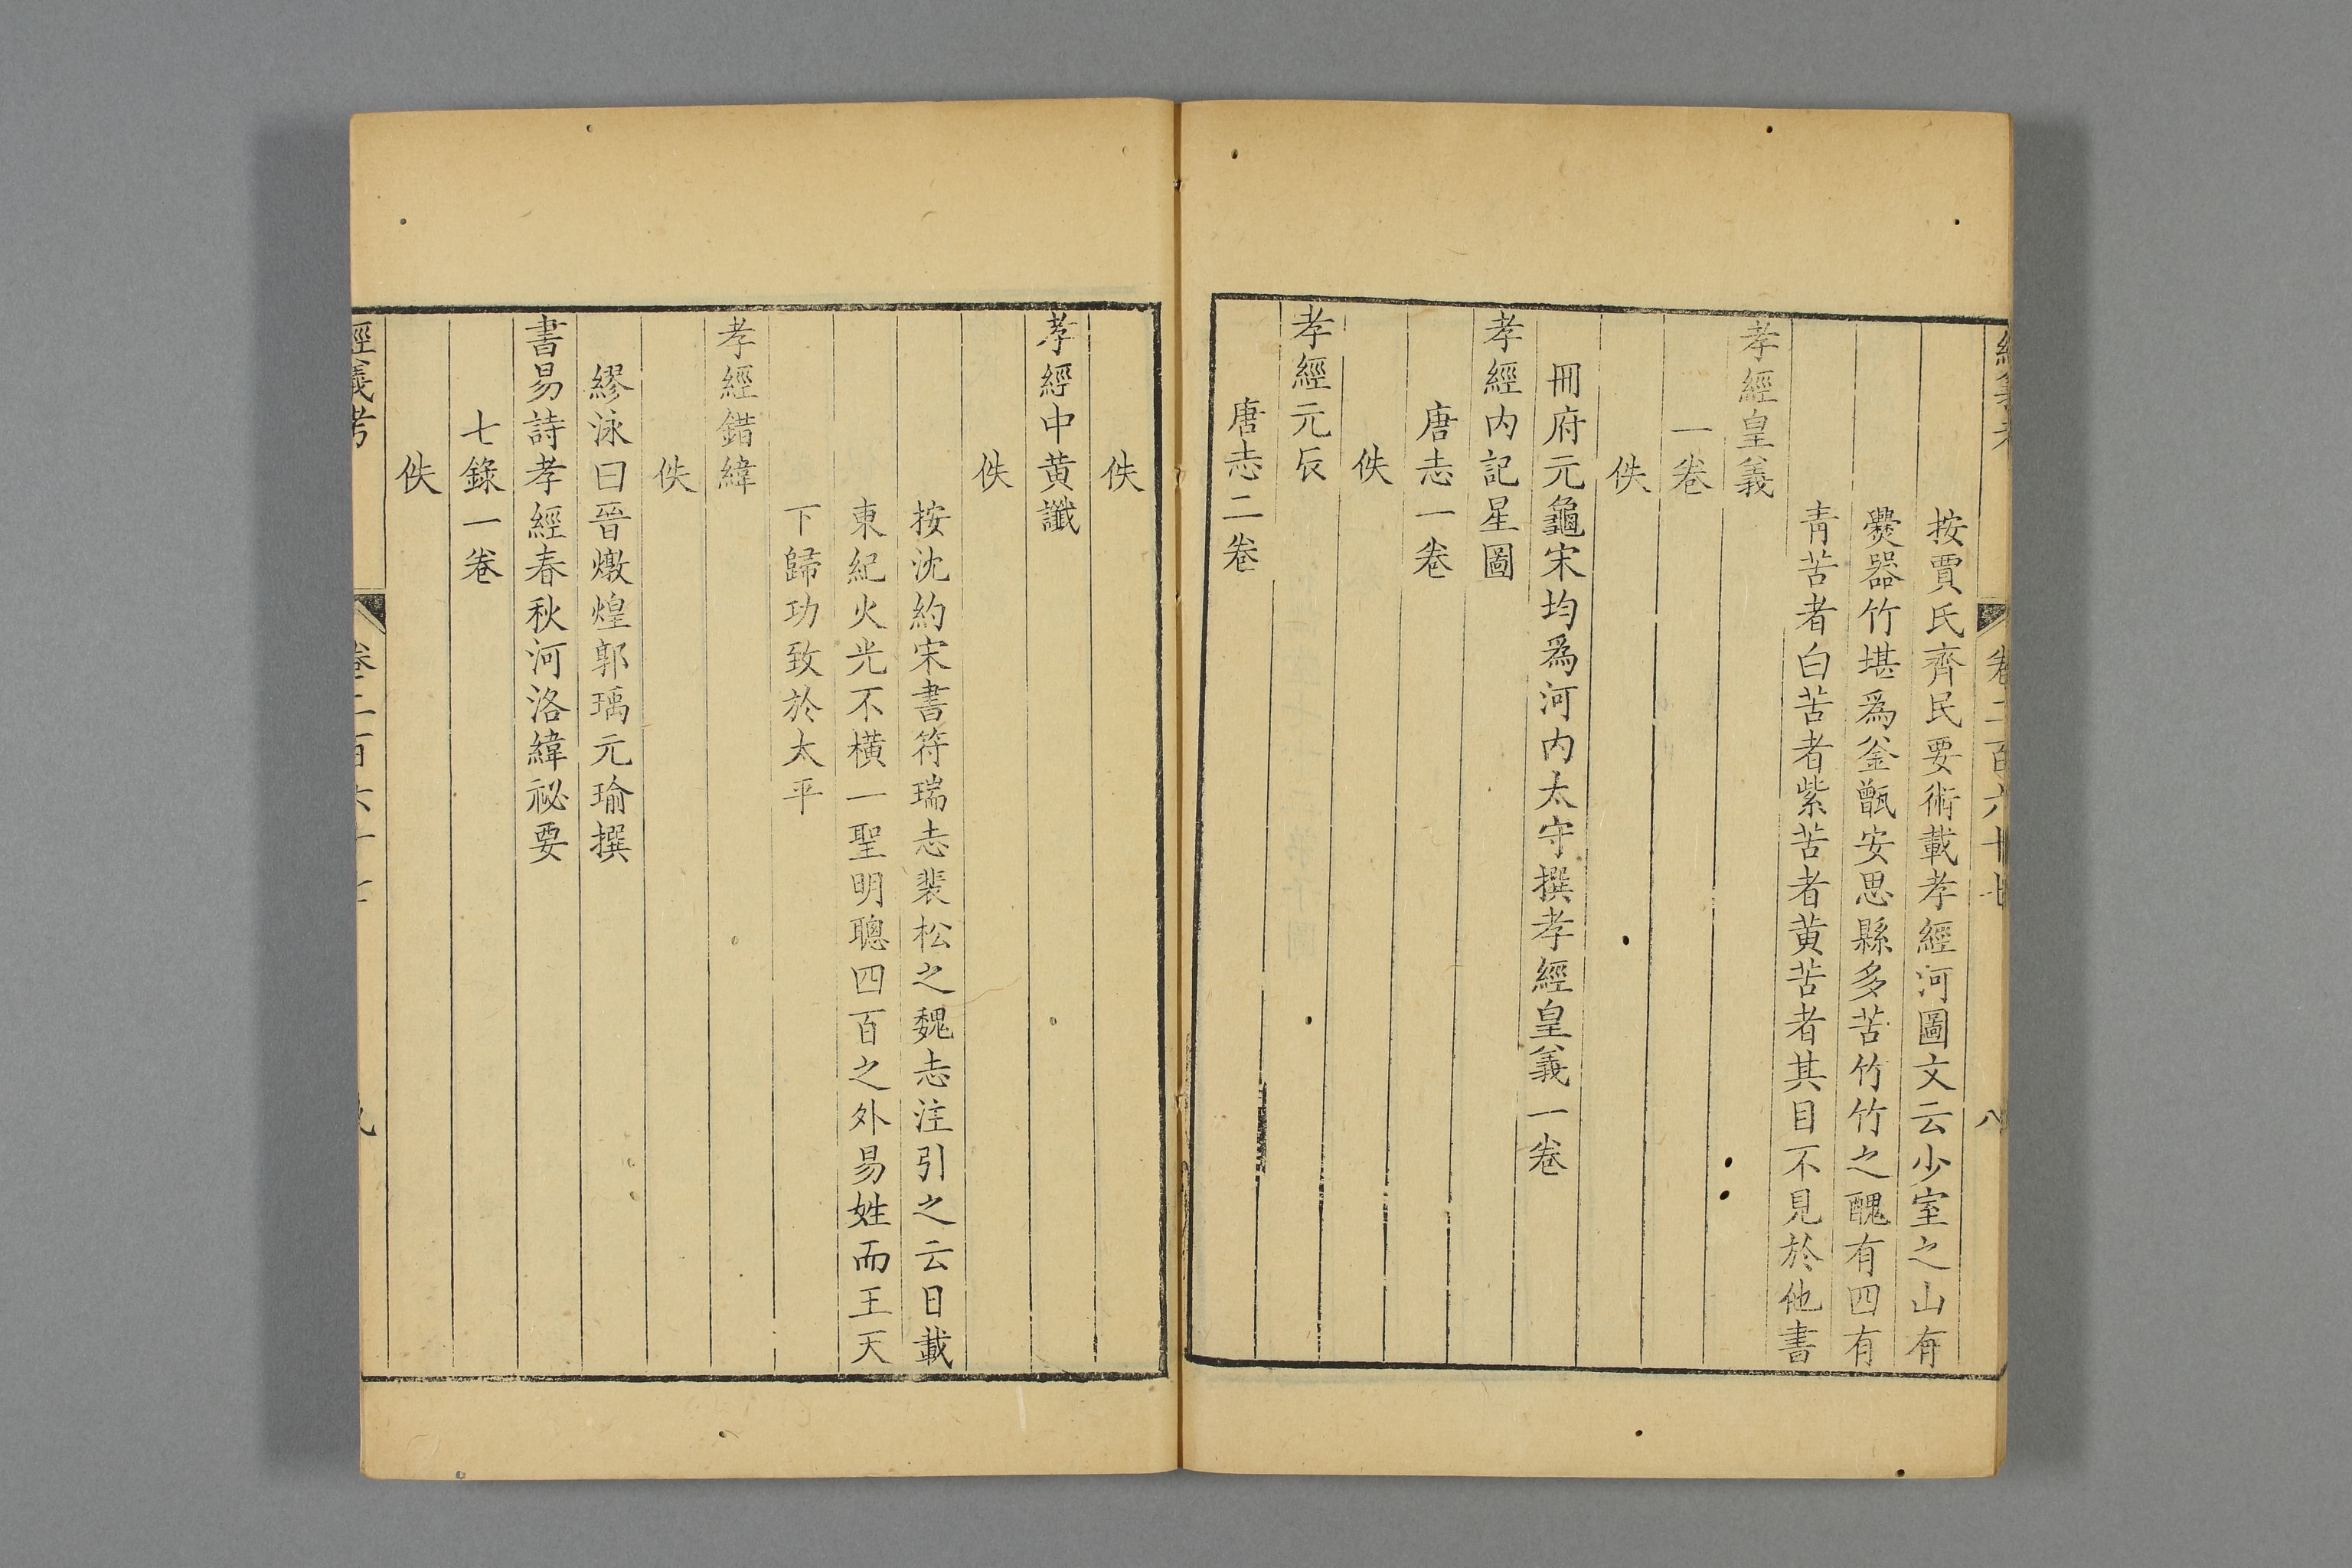 經義考 卷二百六十七 八
按賈氏齊民要術載孝經河圖文云少室之山有
爨器竹堪爲釜甑安思縣多苦竹竹之醜有四有
青苦者白苦者紫苦者黄苦者其目不見於他書
孝經皇義
一卷
佚
冊府元龜宋均爲河内太守撰孝經皇義一卷
孝經内記星圖
唐志一卷
佚
孝經元辰
唐志二卷
佚
孝經中黄讖
佚
按沈約宋書符瑞志裴松之魏志注引之云日載
東紀火光不橫一聖明聰四百之外易姓而王天
下歸功致於太平
孝經錯緯
佚
繆泳曰晉燉煌郭瑀元瑜撰
書易詩孝經春秋河洛緯祕要
七錄一卷
佚
經義考 卷二百六十七 九